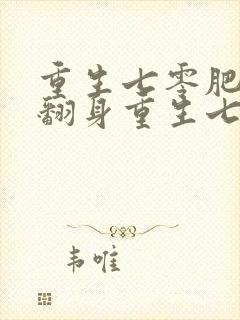 重生七零肥
翻身重生七
韦唯